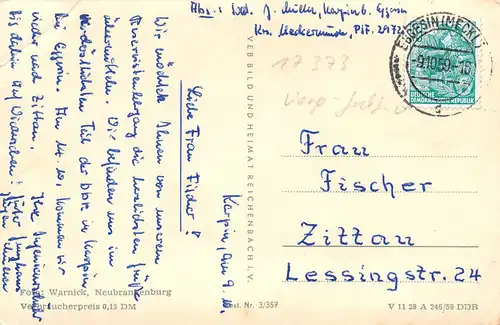 Abs: Uwd. J. Müller, Karpin b. Eggesin
Krs. Ueckermünde, P.S.F. 2972
EGGESIN (MECKL)
-9.10.59.-16
DEUTSCHE
DEMOKRATISCHE REPUBLIK
17 373
Karpin, den 9.10.
Liebe Frau Fischer!
Wir möchten Ihnen von unserem
Reservistenlehrgang die herzlichsten Grüße
übermitteln. Wir befinden uns im
nordöstlichsten Teil der DDR in Karpin
bei Eggesin. Am 14.10. kommen wir
wieder nach Zittau.
Bis dahin auf Wiedersehen!
Ihre Ingenieurschüler
Frau
Fischer
Zittau
Lessingstr. 24
VEB BILD UND HEIMAT REICHENBACH I. V.
Foto: Warnick, Neubrandenburg
Verbraucherpreis 0,15 DM
Best. Nr. 3/357
V 11 28 A 246/59 DDR